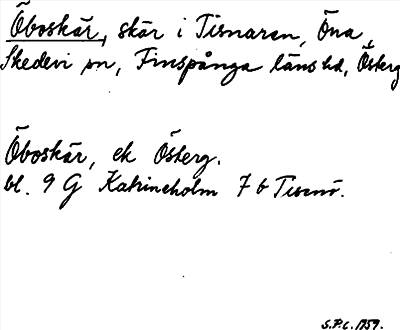 Öboskär, skär i Tisnaren, Öna,
Skedevi sn, Finspånga läns hd, Österg
Öboskär, ek Österg.
bl. 9 G Katrineholm 7 b Tisenö.
S.P.C. 1959.